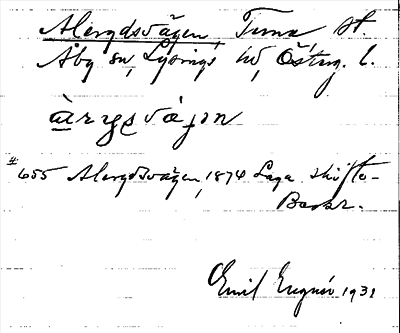 Alergdsvägen, Tuna, St.
Åby sn, Lysings hd, Östug. l.
àrrgsvájən
#655 Alergdsvägen, 1874 Laga skifte-
Beskr.
Emil 1931